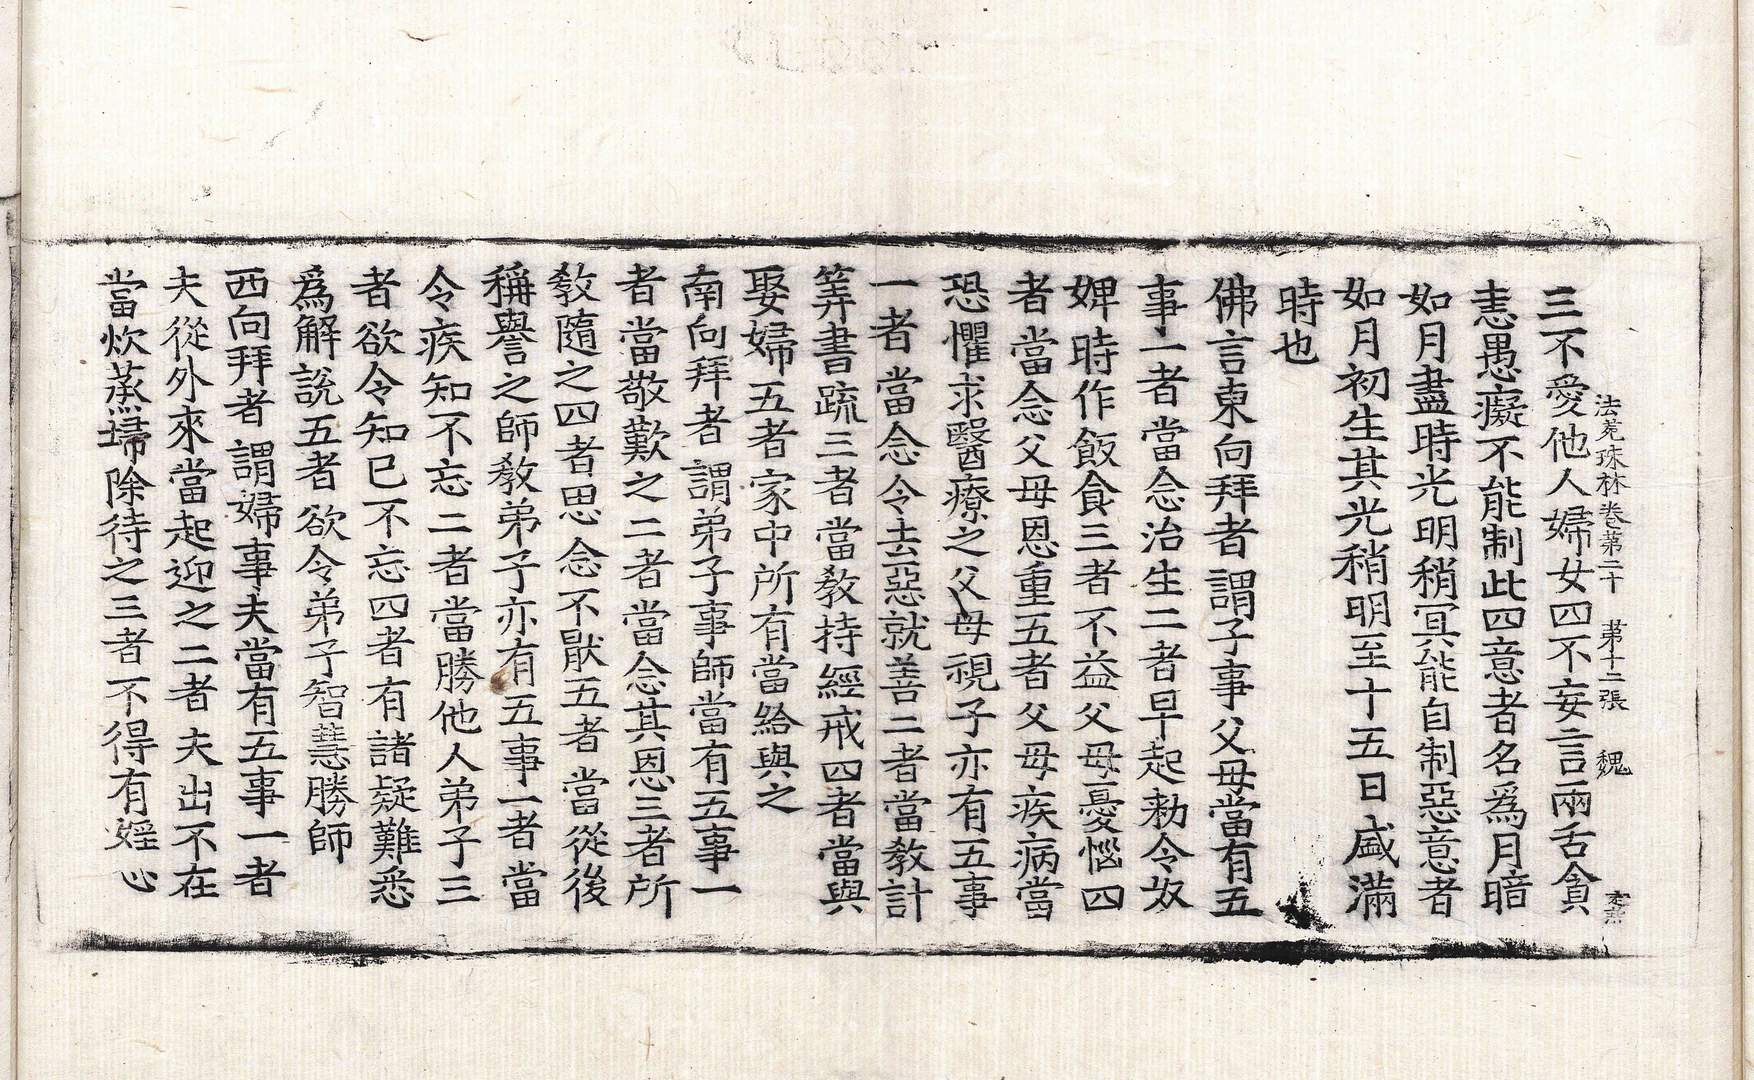 法苑珠林卷第二十 第十二張 魏
三不愛他人婦女四不妄言兩舌貪
恚愚癡不能制此四意者名爲月暗
如月盡時光明稍冥能自制惡意者
如月初生其光稍明至十五日盛滿
時也
佛言東向拜者謂子事父母當有五
事一者當念治生二者早起勑令奴
婢時作飯食三者不益父母憂惱四
者當念父母恩重五者父母疾病當
恐懼求醫療之父母視子亦有五事
一者當念令去惡就善二者當教計
筭書疏三者當教持經戒四者當與
娶婦五者家中所有當給與之
南向拜者謂弟子事師當有五事一
者當敬歎之二者當念其恩三者所
教隨之四者思念不猒五者當從後
稱譽之師教弟子亦有五事一者當
令疾知不忘二者當勝他人弟子三
者欲令知已不忘四者有諸疑難悉
爲解說五者欲令弟子智慧勝師
西向拜者謂婦事夫當有五事一者
夫從外來當起迎之二者夫出不在
當炊蒸埽除待之三者不得有婬心